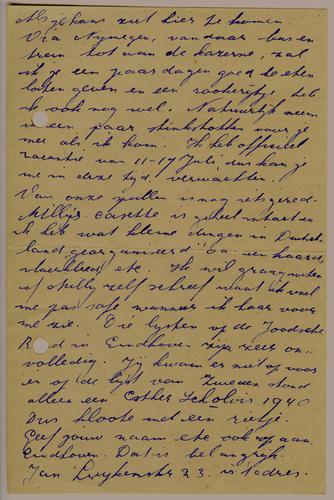 Als je kans ziet hier te komen.
Via Nijmegen, vandaar bus en
trein tot aan de kazerne, zal
ik je een paar dagen goed te eten
laten geven en een rookertje heb
ik ook nog wel. Natuurlijk neem
ik een paar stinkstokken voor je
mee als ik kom. Ik heb officieel
vacantie van 11-17 Juli, dus kan je
me in deze tijd verwachten.
Van onze spullen is nog iets gered.
Milly's cassette is geheel intact en
ik heb wat kleine dingen in Duitsch-
land georganiseerd o.a. een haard,
etc. Ik wil graag weten
of Milly zelf schreef want ik voel
me pas safe wanneer ik haar voor
me zie. Die lijsten op de Joodsche
Raad in Eindhoven zijn zeer on-
volledig. Jij kwam er niet op voor
en op de lijst van Zweden stond
alleen een Esther Scholvis 1940
Dus kloote met een rietje.
Geef jouw naam etc ook op aan
Eindhoven. Dat is belangrijk.
Jan Luykenstr 23. is 't adres.